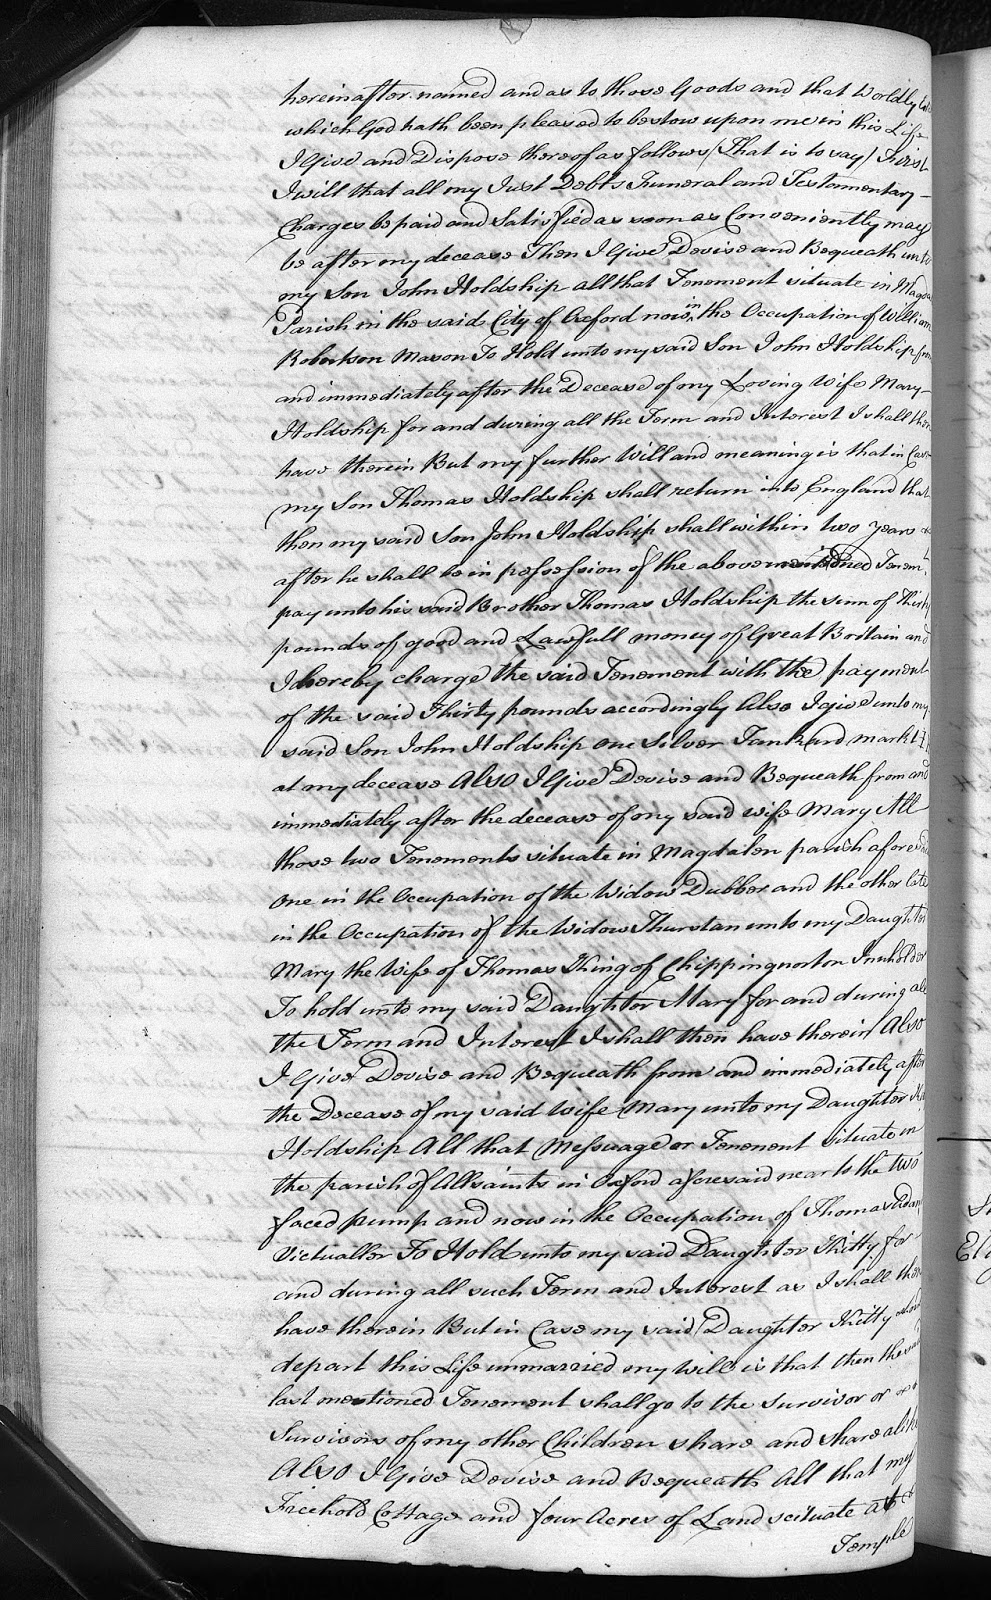 hereinafter named and as to those Goods and that Worldly
which God hath been pleased to bestow upon me in this Life
I Give and Dispose thereof as follows (That is to say) First
I will that all my Just Debts Funeral and Testamentary
Charges be paid and Satisfied as soon as Conveniently may
be after my decease Then I Give Devise and Bequeath unto
my Son John Holdship all that Tenement situate in
Parish in the said City of Oxford now in the Occupation of William
Robertson Mason To Hold unto my said Son John Holdship from
and immediately after the Decease of my Loving Wife Mary
Holdship for and during all the Term and Interest I shall then
have therein But my further Will and meaning is that in Case
my Son Thomas Holdship shall return into England that
then my said Son John Holdship shall within two years
after he shall be in possession of the abovementioned Tenemt
pay unto his said Brother Thomas Holdship the sum of Thirty
pounds of good and Lawfull money of Great Britain and
I hereby charge the said Tenement with the payment
of the said Thirty pounds accordingly Also I give unto my
said Son John Holdship one Silver Tankard markt
at my decease Also I Give Devise and Bequeath from and
immediately after the decease of my said wife Mary All
those two Tenements situate in Magdalen parish aforesaid
one in the Occupation of the Widow Dubber and the other late
in the Occupation of the Widow Thurstan unto my Daughter
Mary the Wife of Thomas King of Chippingnorton Innholder
To hold unto my said Daughter Mary for and during all
the Term and Interest I shall then have therein Also
I Give Devise and Bequeath from and immediately after
the Decease of my said Wife Mary unto my Daughter
Holdship All that Messuage or Tenement situate in
the parish of Allsaints in Oxford aforesaid near to the two
faced pump and now in the Occupation of Thomas
Victualler To Hold unto my said Daughter Kitty for
and during all such Term and Interest as I shall then
have therein But in Case my said Daughter Kitty should
depart this Life unmarried my Will is that then the said
last mentioned Tenement shall go to the Survivor or
Survivors of my other Children share and share alike
Also I Give Devise and Bequeath All that my
Freehold Cottage and four Acres of Land scituate at
Temple